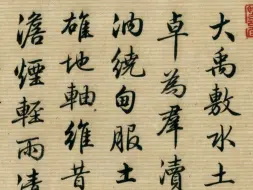 大禹敷水土
卓為羣瀆
汭繞甸服土
雄地軸維昔
澹煙輕雨濤